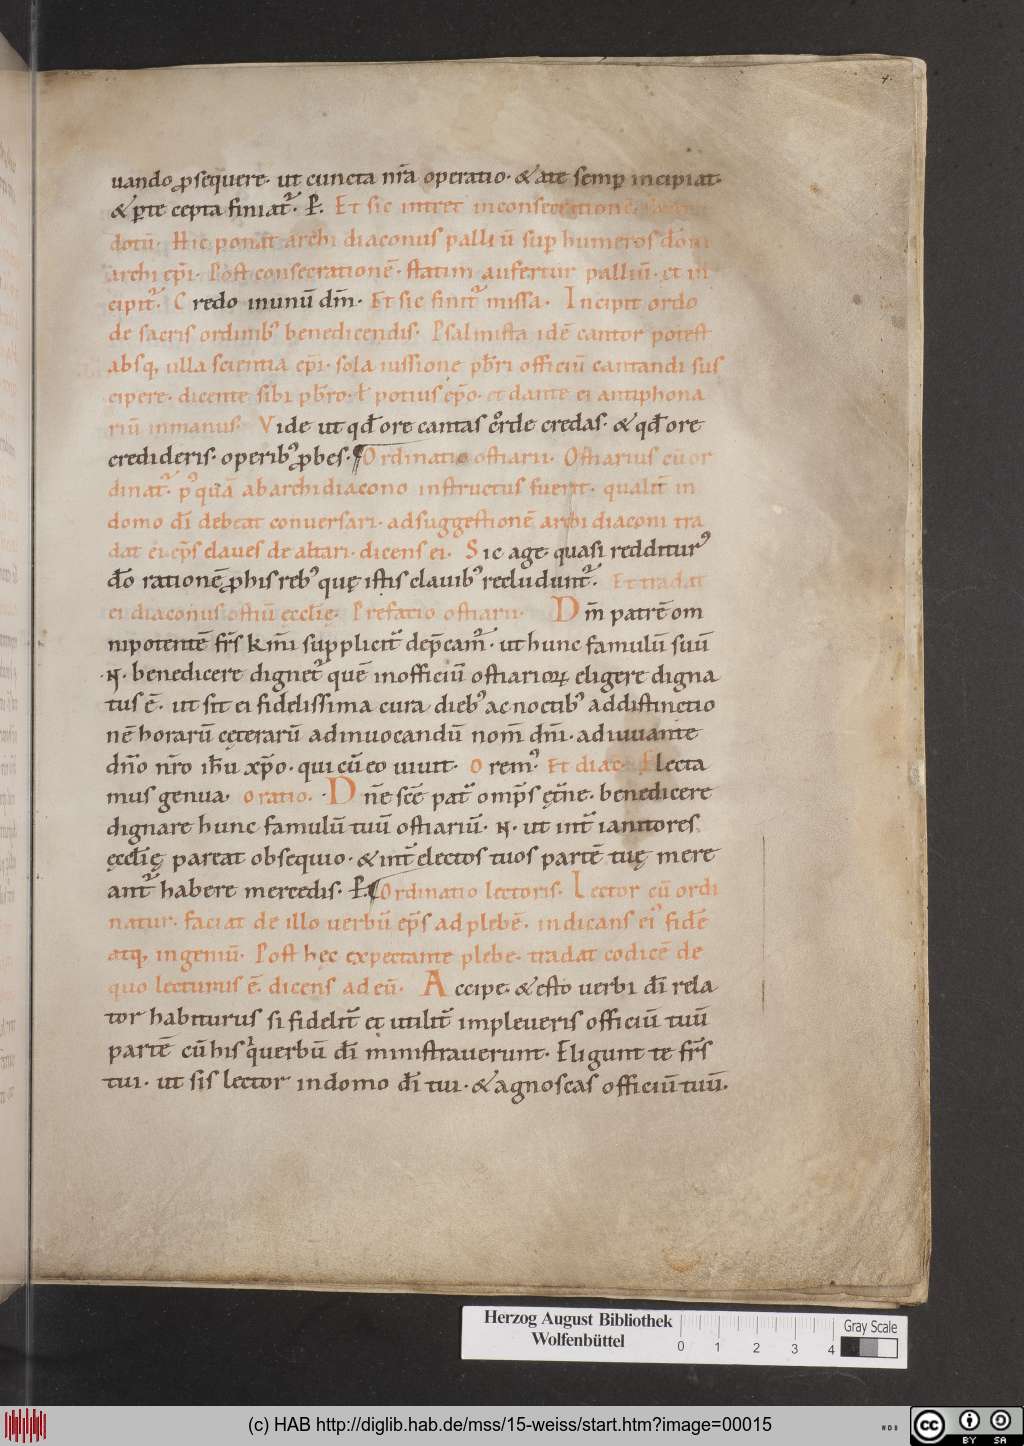 4.
uando p̄sequere· ut cuncta nr̄a operatio· & ate semp̄ incipiat·
& p̄ te cepta finiat᷑· P̄. Et sic intret in consecratione
dotū· Hic ponat archi diaconus palliū sup̄ humeros domi
archi ep̄i· Post consecrationē· statim aufertur palliū· et in
cipit᷑· Credo in unū dm̄· Et sic finit᷑ missa· Incipit ordo
de sacris ordinibꝰ benedicendis· Psalmista idē cantor potest
absq, ulla scientia ep̄i· sola iussione pb̄ri officiū cantandi sus
cipere· dicente sibi pb̄ro· ł potius ep̄o· et dante ei antiphona
riū in manus· Vide ut qd̄ ore cantas corde credas· & qd̄ ore
credideris· operibꝰ p̄bes· ¶ Ordinatio ostiarii· Ostiarius cū or
dinat᷑· pꝰquā ab archidiacono instructus fuerit· qualit̄ in
domo dī debeat conuersari· ad suggestionē archi diaconi tra
dat ei ep̄s claues de altari· dicens ei· Sic age quasi redditurꝰ
do᷒ rationē p̄ his rebꝰ quę istis clauibꝰ recludunt᷑· Et tradat
ei diaconus ostiū ęccłię· Prefatio ostiarii· Dm̄ patrē om
nipotentē fr̄s km̄i supplicit̄ dep̄cam᷑· ut hunc famulū suū
·N· benedicere dignet᷑ quē in officiū ostiarioꝝ eligere digna
tus ē· ut sit ei fidelissima cura diebꝰ ac noctibꝰ ad distinctio
nē horarū cęterarū ad inuocandū nom̄ dn̄i· adiuuante
dn̄o nr̄o ih̄u xp̄o· qui cū eo uiuit· Oremꝰ· Et diac· Flecta
mus genua· Oratio· Dn̄e sc̄e pat̄ omp̄s ęt̄ne· benedicere
dignare hunc famulū tuū ostiariū· N· ut int̄ ianitores
ęccłię pareat obsequio· & int̄ electos tuos partē tuę mere
ant᷑ habere mercedis· P̄ ¶ Ordinatio lectoris· Lector cū ordi
natur· faciat de illo uerbū ep̄s ad plebē· indicans eiꝰ fidē
atq, ingeniū· Post hęc expectante plebe· tradat codicē de
quo lecturus ē· dicens ad eū· Accipe· & esto uerbi dī rela
tor habiturus si fidelit̄ et utilit̄ impleueris officiū tuū
partē cū his q̄ uerbū dī ministrauerunt· Eligunt te fr̄s
tui· ut sis lector in domo dī tui· & agnoscas officiū tuū·
Herzog August Bibliothek
Wolfenbüttel
0 1 2 3 4
Gray Scale
(c) HAB http://diglib.hab.de/mss/15-weiss/start.htm?image=00015
cc BY SA